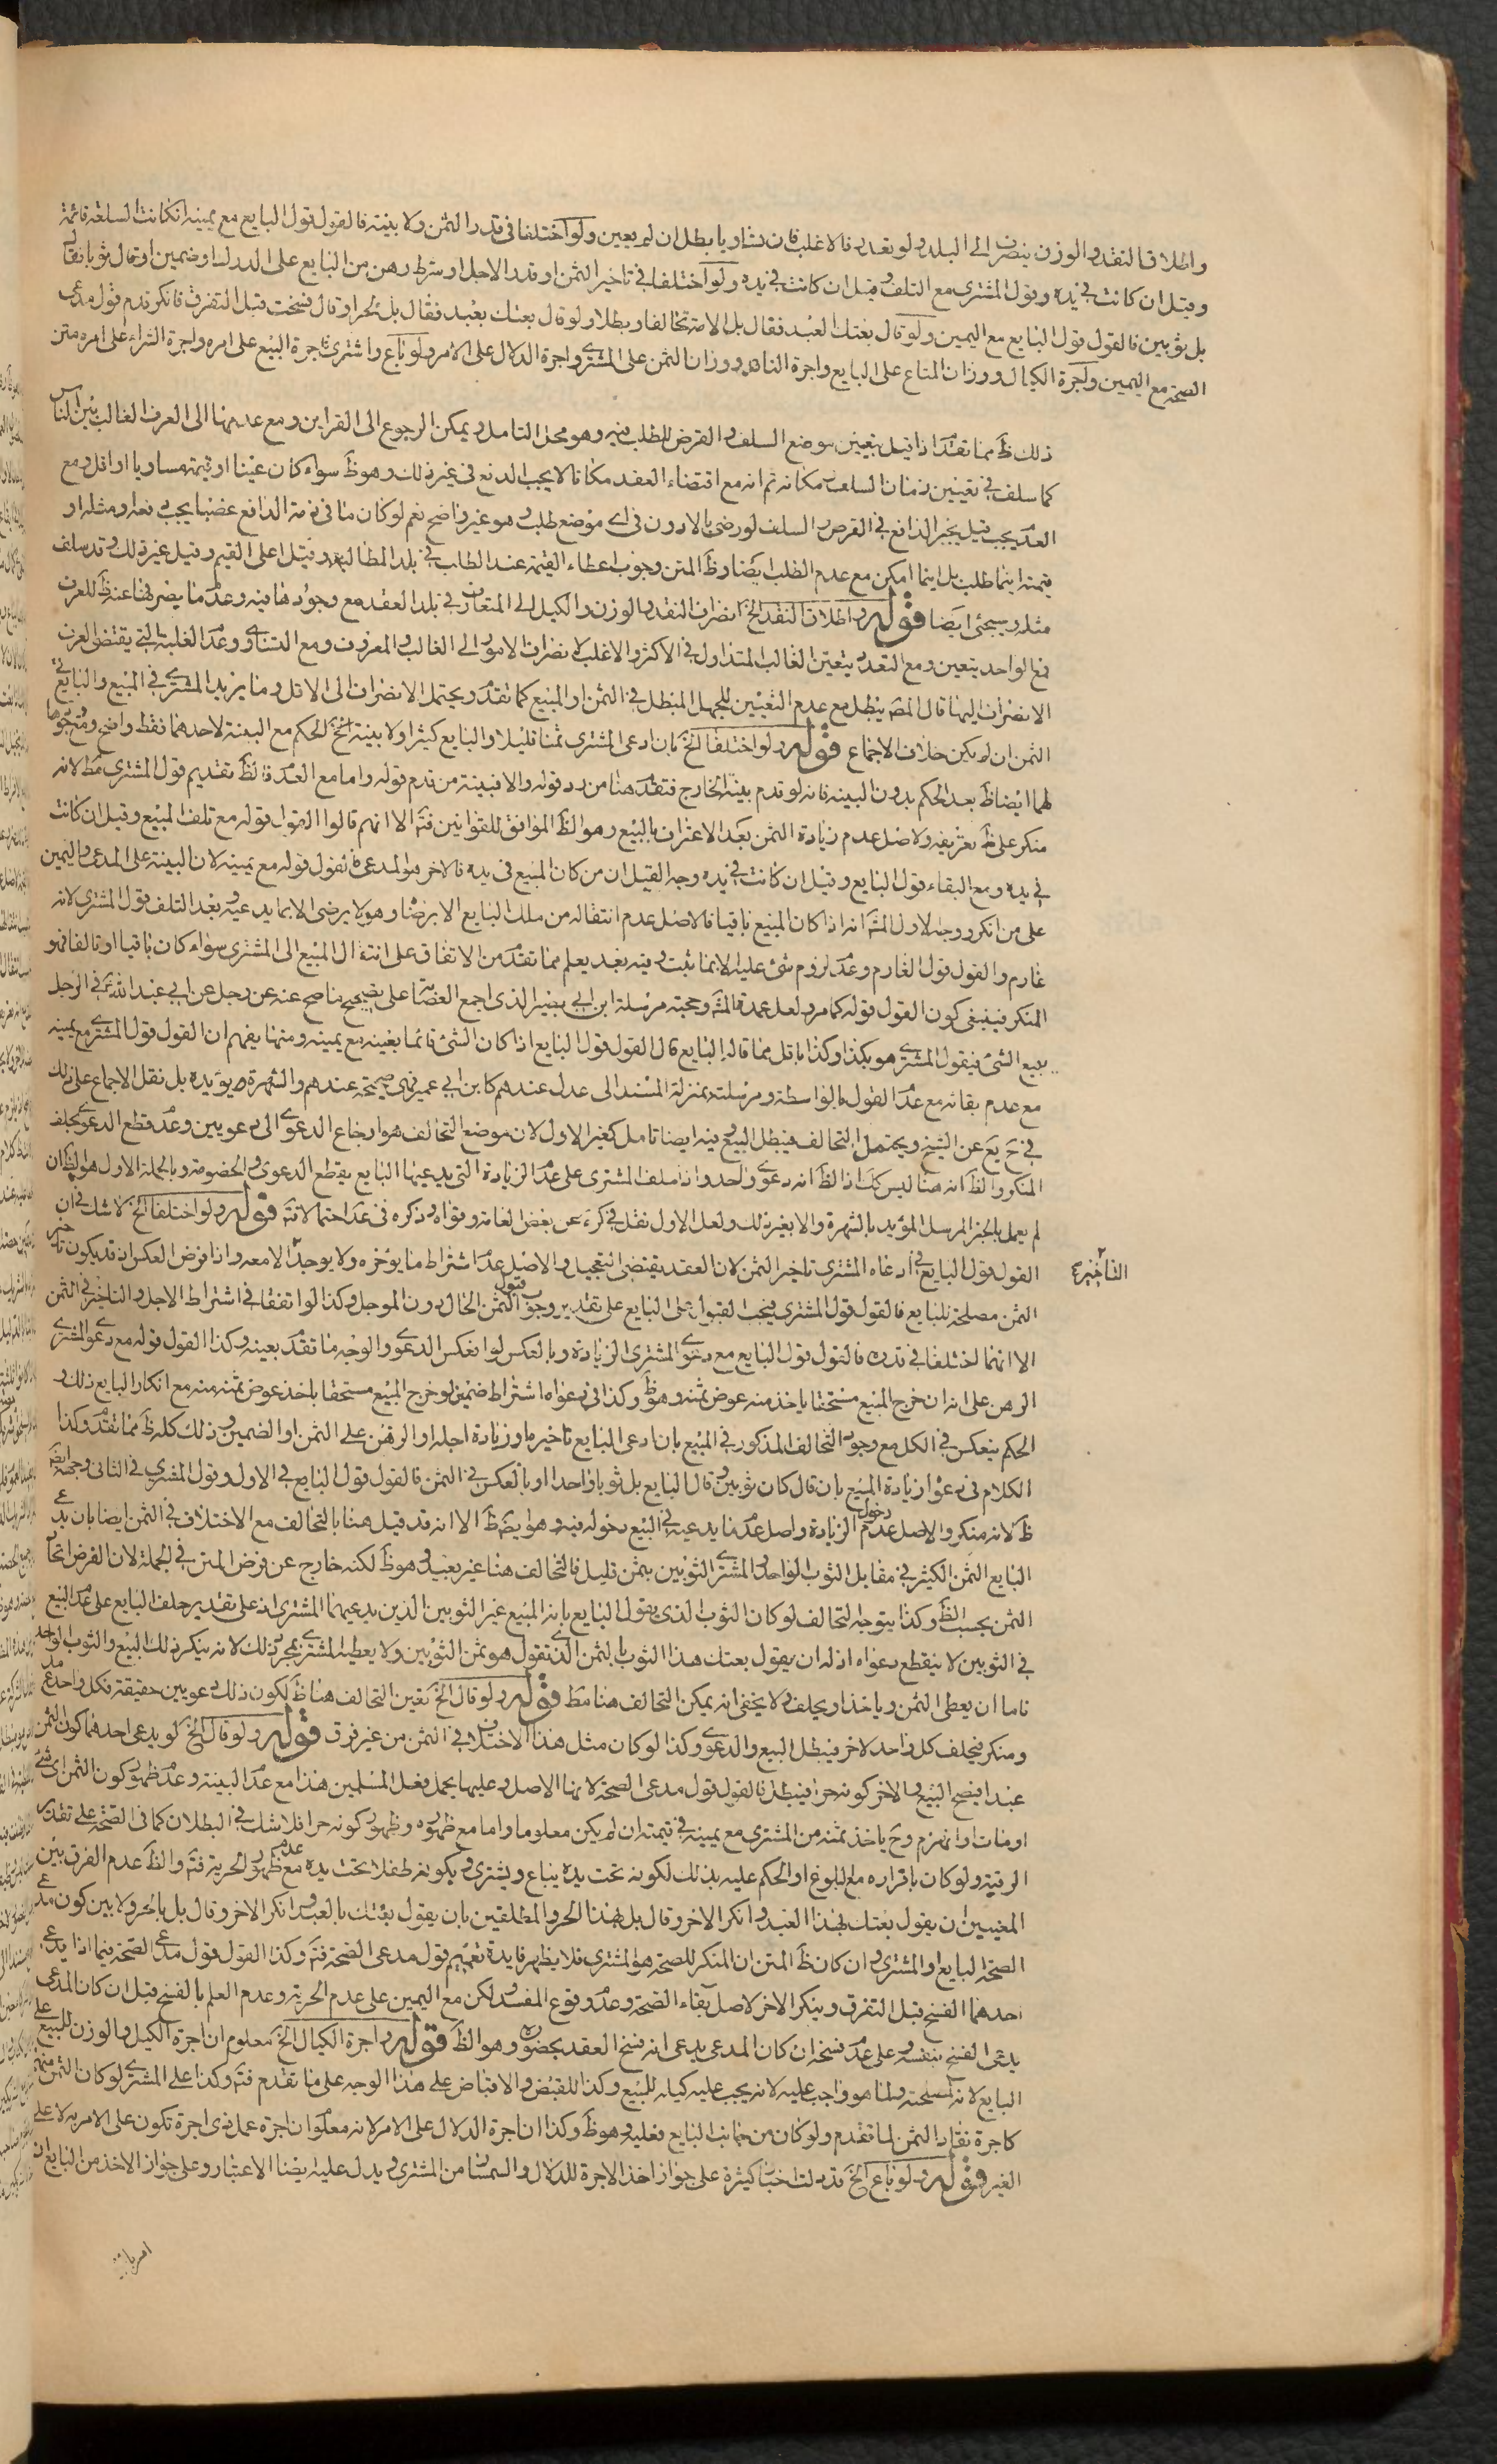 واطلاق النقد والوزن ينصرف الى البلد ولو تعدد فالاغلب فان تساويا بطل ان لم يعين ولو اختلفا فى قدر الثمن ولا بينة فالقول قول البايع مع يمينه ان كانت السلعة قائمة
وقيل ان كانت فى يده وقول المشترى مع التلف وقيل ان كانت فى يده ولو اختلفا فى تاخير الثمن او قدر الاجل او شرط رهن من البايع على الدرك او ضمين او قال ثوبا فقال
بل ثوبين فالقول قول البايع مع اليمين ولو قال بعتك العبد فقال بل الامة تحالفا وبطلا ولو قال بعتك بعبد فقال بل بحر او قال فسخت قبل التفرق فانكر قدم قول مدعى
الصحة مع اليمين واجرة الكيال ووزان المتاع على البايع واجرة الناقد ووزان الثمن على المشترى واجرة الدلال على الامر ولو باع واشترى فاجرة البيع على امره واجرة الشراء على امره متن
ذلك ظ مما تقدم اذا قيل بتعيين موضع السلف والقرض للطلب فيه وهو محل التامل ويمكن الرجوع الى القراين ومع عدمها الى العرف الغالب بين الناس
كما سلف فى تعيين زمان السلف ومكانه ثم انه مع اقتضاء العقد مكانا لا يجب الدفع فى غير ذلك وهو ظ سواء كان عينا او قيمته مساويا او اقل ومع
العدم يجب قيل يخير الدافع فى القرض والسلف لو رضى بالادون فى اى موضع طلب وهو غير واضح نعم لو كان ما فى ذمة الدافع غصبا يجب دفعه ومثله او
قيمته اينما طلب بل اينما امكن مع عدم الطلب ايضا وظ المتن وجوب اعطاء القيمة عند الطلب فى بلد المطالبة وقيل اعلى القيم وقيل غير ذلك وقد سلف
مثله وسيجئ ايضا قوله واطلاق النقد الخ انصراف النقد والوزن والكيل الى المتعارف فى بلد العقد مع وجودها فيه وعدم ما يصرفها عنه ظ للعرف
فمع الواحد يتعين ومع التعدد يتعين الغالب المتداول فى الاكثر والاغلب لانصراف الامور الى الغالب والمعروف ومع التساوى وعدم الغلبة التى يقتضى العرف
الانصراف اليها قال المص يبطل مع عدم التعيين للجهل المبطل فى الثمن او المبيع كما تقدم ويحتمل الانصراف الى الاقل وما يزيد المشترى فى المبيع والبايع فى
الثمن ان لم يكن خلاف الاجماع قوله ولو اختلفا الخ بان ادعى المشترى ثمنا قليلا والبايع كثيرا ولا بينة الخ الحكم مع البينة لاحدهما فقط واضح ومع وجودها
لهما ايضا ظ بعد الحكم بدون البينة فانه لو قدم بينة الخارج فتقدم هنا من رد قوله والا فبينة من قدم قوله واما مع العدم فالظ تقديم قول المشترى مط لانه
منكر على ظ تعريفه ولاصل عدم زيادة الثمن بعد الاعتراف بالبيع وهو الظ الموافق للقوانين فتم الا انهم قالوا القول قوله مع تلف المبيع وقيل ان كانت
فى يده ومع البقاء قول البايع وقيل ان كانت فى يده وجه القيل ان من كان المبيع فى يده فالاخر هو المدعى فالقول قوله مع يمينه لان البينة على المدعى واليمين
على من انكر ووجه الاول المش انه اذا كان المبيع باقيا فالاصل عدم انتقاله من ملك البايع الا برضاه وهو لا يرضى الا بما يدعيه وبعد التلف قول المشترى لانه
غارم والقول قول الغارم وعدم لزوم شئ عليه الا بما ثبت وفيه بعد يعلم مما تقدم من الاتفاق على انتقال المبيع الى المشترى سواء كان باقيا او تالفا فهو
المنكر فينبغى كون القول قوله كما مر ولعل عمدة المش وحجته مرسلة ابن ابى نصير الذى اجمع العصابة على تصحيح ما صح عنه عن رجل عن ابى عبد الله ع فى الرجل
يبيع الشئ فيقول المشترى هو بكذا وكذا باقل مما قاله البايع قال القول قول البايع اذا كان الشئ قائما بعينه مع يمينه ومنها يفهم ان القول قول المشترى مع يمينه
مع عدم بقائه مع عدم القول بالواسطة ومرسلته بمنزلة المسند الى عدل عندهم كابن ابى عمير فهى صحيحة عندهم والشهرة مؤيدة بل نقل الاجماع على ذلك
فى ح يع عن الشيخ ويحتمل التحالف فيبطل البيع وفيه ايضا تامل كغير الاول لان موضع التحالف هو ارجاع الدعوى الى دعويين وعدم قطع الدعوى بحلف
المنكر والظ انه هنا ليس كك اذ الظ انه دعوى واحد واذا حلف المشترى على عدم الزيادة التى يدعيها البايع يقطع الدعوى والخصومة وبالجملة الاول هو الظ ان
لم يعمل بالخبر المرسل المؤيد بالشهرة والا بغير ذلك ولعل الاول نقل فى كره عن بعض العامة وقواه وذكره فى عد احتمالا فتم قوله ولو اختلفا الخ لا شك فى ان
القول قول البايع فى ادعاء المشترى تاخير الثمن لان العقد يقتضى التعجيل والاصل عدم اشتراط ما يؤخره ولا يوجد الا معه واذا فرض العكس اذ قد يكون تاخير
التاخير ع
الثمن مصلحة للبايع فالقول قول المشترى فيجب القبول على البايع على تقدير وجوب قبول الثمن الحال دون الموجل وكذا لو اتفقا فى اشتراط الاجل والتاخير فى الثمن
الا انهما اختلفا فى قدره فالقول قول البايع مع دعوى المشترى الزيادة وبالعكس لو انعكس الدعوى والوجه ما تقدم بعينه وكذا القول قوله مع دعوى المشترى
الرهن على انه ان خرج المبيع مستحقا ياخذ منه عوض ثمنه وهو ظ وكذا فى دعواه اشتراط ضمين لو خرج المبيع مستحقا ياخذ عوض ثمنه منه مع انكار البايع ذلك و
الحكم ينعكس فى الكل مع وجود التخالف المذكور فى المبيع بان ادعى البايع تاخير ما وزيادة اجله او الرهن على الثمن او الضمين وذلك كله ظ مما تقدم وكذا
الكلام فى دعوى زيادة المبيع بان قال كان ثوبين وقال البايع بل ثوبا واحدا او بالعكس فى الثمن فالقول قول البايع فى الاول وقول المشترى فى الثانى وجهه ايضا
ظ لانه منكر والاصل عدم دخول الزيادة واصل عدم ما يدعيه فى البيع دخوله فيه وهو ايض ظ الا انه قد قيل هنا بالتحالف مع الاختلاف فى الثمن ايضا بان يدعى
البايع الثمن الكثير فى مقابل الثوب الواحد والمشترى الثوبين بثمن قليل فالتحالف هنا غير بعيد وهو ظ لكنه خارج عن فرض المتن فى الجملة لان الفرض اتحاد
الثمن بحسب الظ وكذا يتوجه التحالف لو كان الثوب الذى يقول البايع بانه المبيع غير الثوبين الذين يدعيهما المشترى اذ على تقدير حلف البايع على عدم البيع
فى الثوبين لا ينقطع دعواه اذ له ان يقول بعتك هذا الثوب بالثمن الذى تقول هو ثمن الثوبين ولا يعطيه المشترى بمجرد ذلك لانه ينكر ذلك البيع والثوب الواحد
فاما ان يعطى الثمن وياخذ او يحلف ولا يخفى انه يمكن التحالف هنا مط قوله ولو قال الخ تعين التحالف هنا ظ لكون ذلك دعويين حقيقة فكل واحد مدعى
ومنكر فيحلف كل واحد لاخر فيبطل البيع والدعوى وكذا لو كان مثل هذا الاختلاف فى الثمن من غير فرق قوله ولو قال الخ لو يدعى احدهما كون الثمن
عبدا فيصح البيع والاخر كونه حرا فيبطل فالقول قول مدعى الصحة لانها الاصل وعليها يحمل فعل المسلمين هذا مع عدم البينة وعدم ظهور كون الثمن اى شئ
او مات او انهزم وح ياخذ ثمنه من المشترى مع يمينه فى قيمته ان لم يكن معلوما واما مع ظهوره وظهور كونه حرا فلا شك فى البطلان كما فى الصحة على تقدير
الرقية ولو كان باقراره مع البلوغ او الحكم عليه بذلك لكونه تحت يده يباع ويشترى ويكونه طفلا تحت يده مع عدم ظهور الحرية فتم والظ عدم الفرق بين
المعينين ان يقول بعتك بهذا العبد وانكر الاخر وقال بل بهذا الحر والمطلقين بان يقول بعتك بالعبد وانكر الاخر وقال بل بالحر ولا بين كون مدعى
الصحة البايع او المشترى وان كان ظ المتن ان المنكر للصحة هو المشترى فلا يظهر فايدة تعميم قول مدعى الصحة فتم وكذا القول قول مدعى الصحة فيما اذا يدعى
احدهما الفسخ قبل التفرق وينكر الاخر لاصل بقاء الصحة وعدم وقوع المفسد ولكن مع اليمين على عدم الحرية وعدم العلم بالفسخ قيل ان كان المدعى
يدعى الفسخ بنفسه وعلى عدم فسخه ان كان المدعى يدعى انه فسخ العقد بحضوره وهو الظ قوله واجرة الكيال الخ معلوم ان اجرة الكيل والوزن للمبيع على
البايع لانه لمصلحته ولما هو واجب عليه لانه يجب عليه كيله للمبيع وكذا للقبض والاقباض على هذا الوجه على ما تقدم فتم وكذا على المشترى لو كان الثمن منه
كاجرة نقاد الثمن لما تقدم ولو كان من جانب البايع فعليه وهو ظ وكذا ان اجرة الدلال على الامر لانه معلوم ان اجرة عمل ذى اجرة تكون على الامر به لا على
الغير قوله ولو باع الخ قد دلت اخبار كثيرة على جواز اخذ الاجرة للدلال والسمسار من المشترى ويدل عليه ايضا الاعتبار وعلى جواز الاخذ من البايع ان